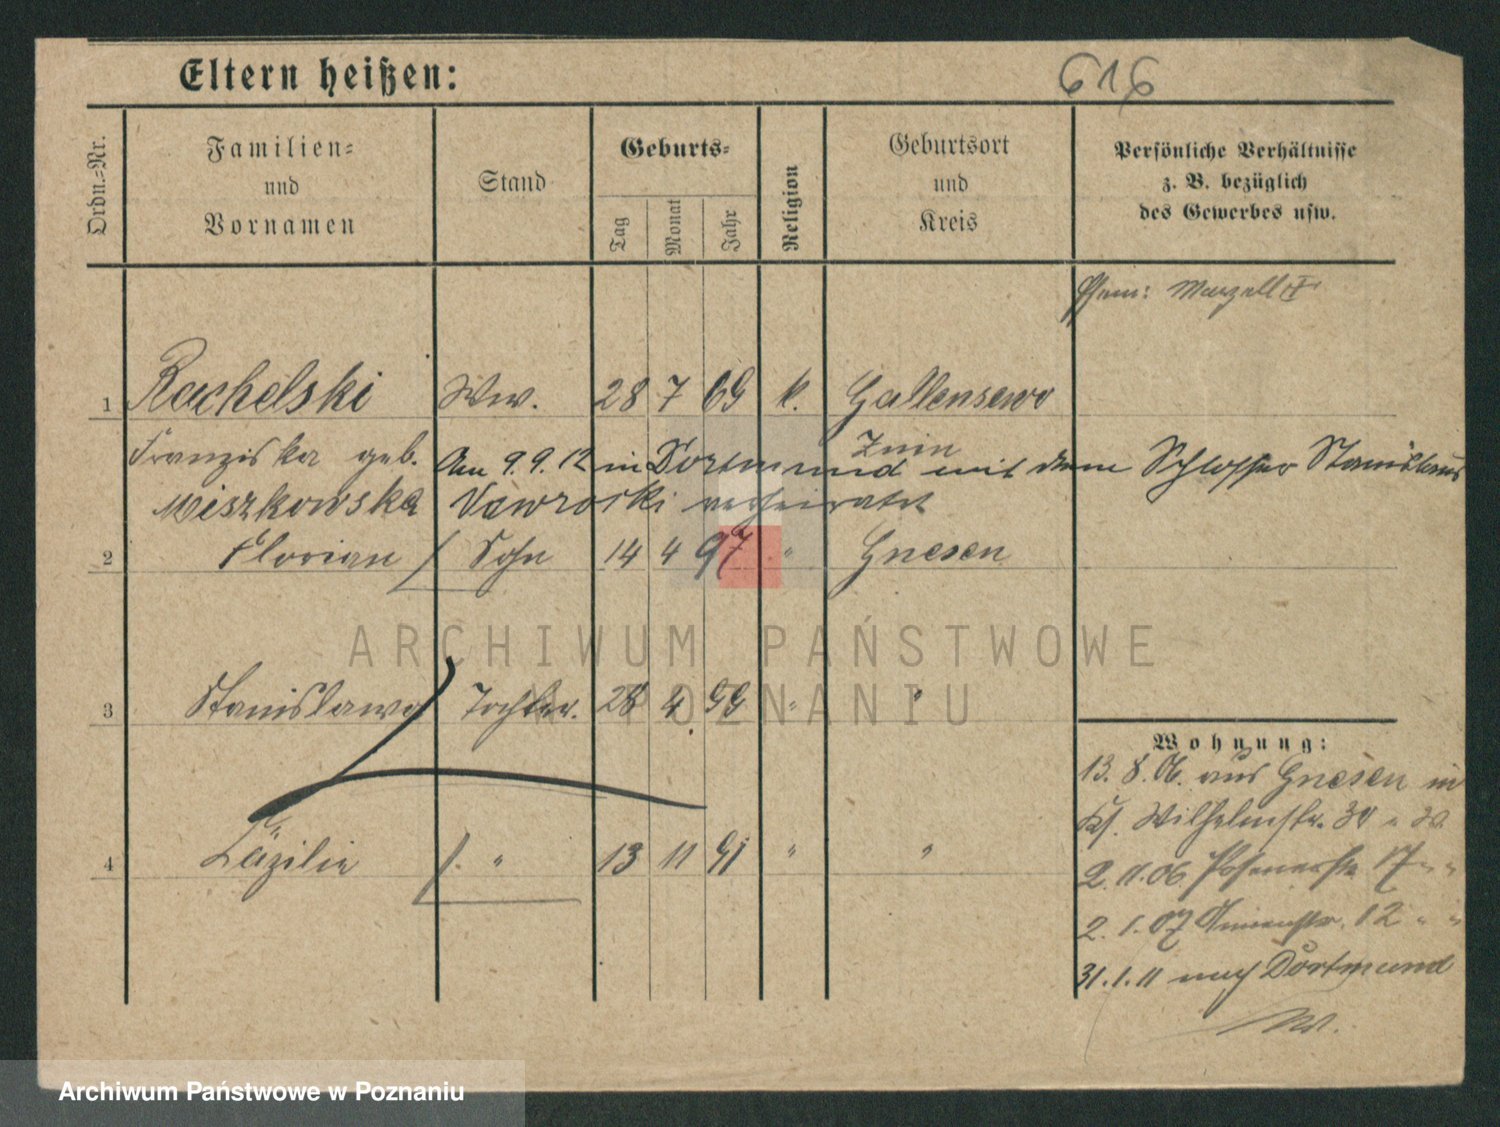 Eltern heißen:
616
Ordn.-Nr.
Familien-
und
Vornamen
Stand
Geburts-
Tag
Monat
Jahr
Religion
Geburtsort
und
Kreis
Persönliche Verhältnisse
z. B. bezüglich
des Gewerbes usw.
Ehem: Marzell †
1 Rachelski Ww. 28 7 69 k. Gallensewo
Znin
Franziska geb. Am 9.9.12 in Dortmund mit dem Schlosser Stanislaus
Miszkowska Nawrocki verheiratet
2 Florian Sohn 14 4 97 " Gnesen
3 Stanislawa Tochter. 28 4 99 " "
4 Cäzilie " 13 11 91 " "
Wohnung:
13. 8. 06. aus Gnesen in
Wilhelmstr. 30
2. 11. 06 Posenerstr 17 " "
2. 1. 07 12 " "
31. 1. 11 nach Dortmund
ARCHIWUM PAŃSTWOWE
W POZNANIU
Archiwum Państwowe w Poznaniu